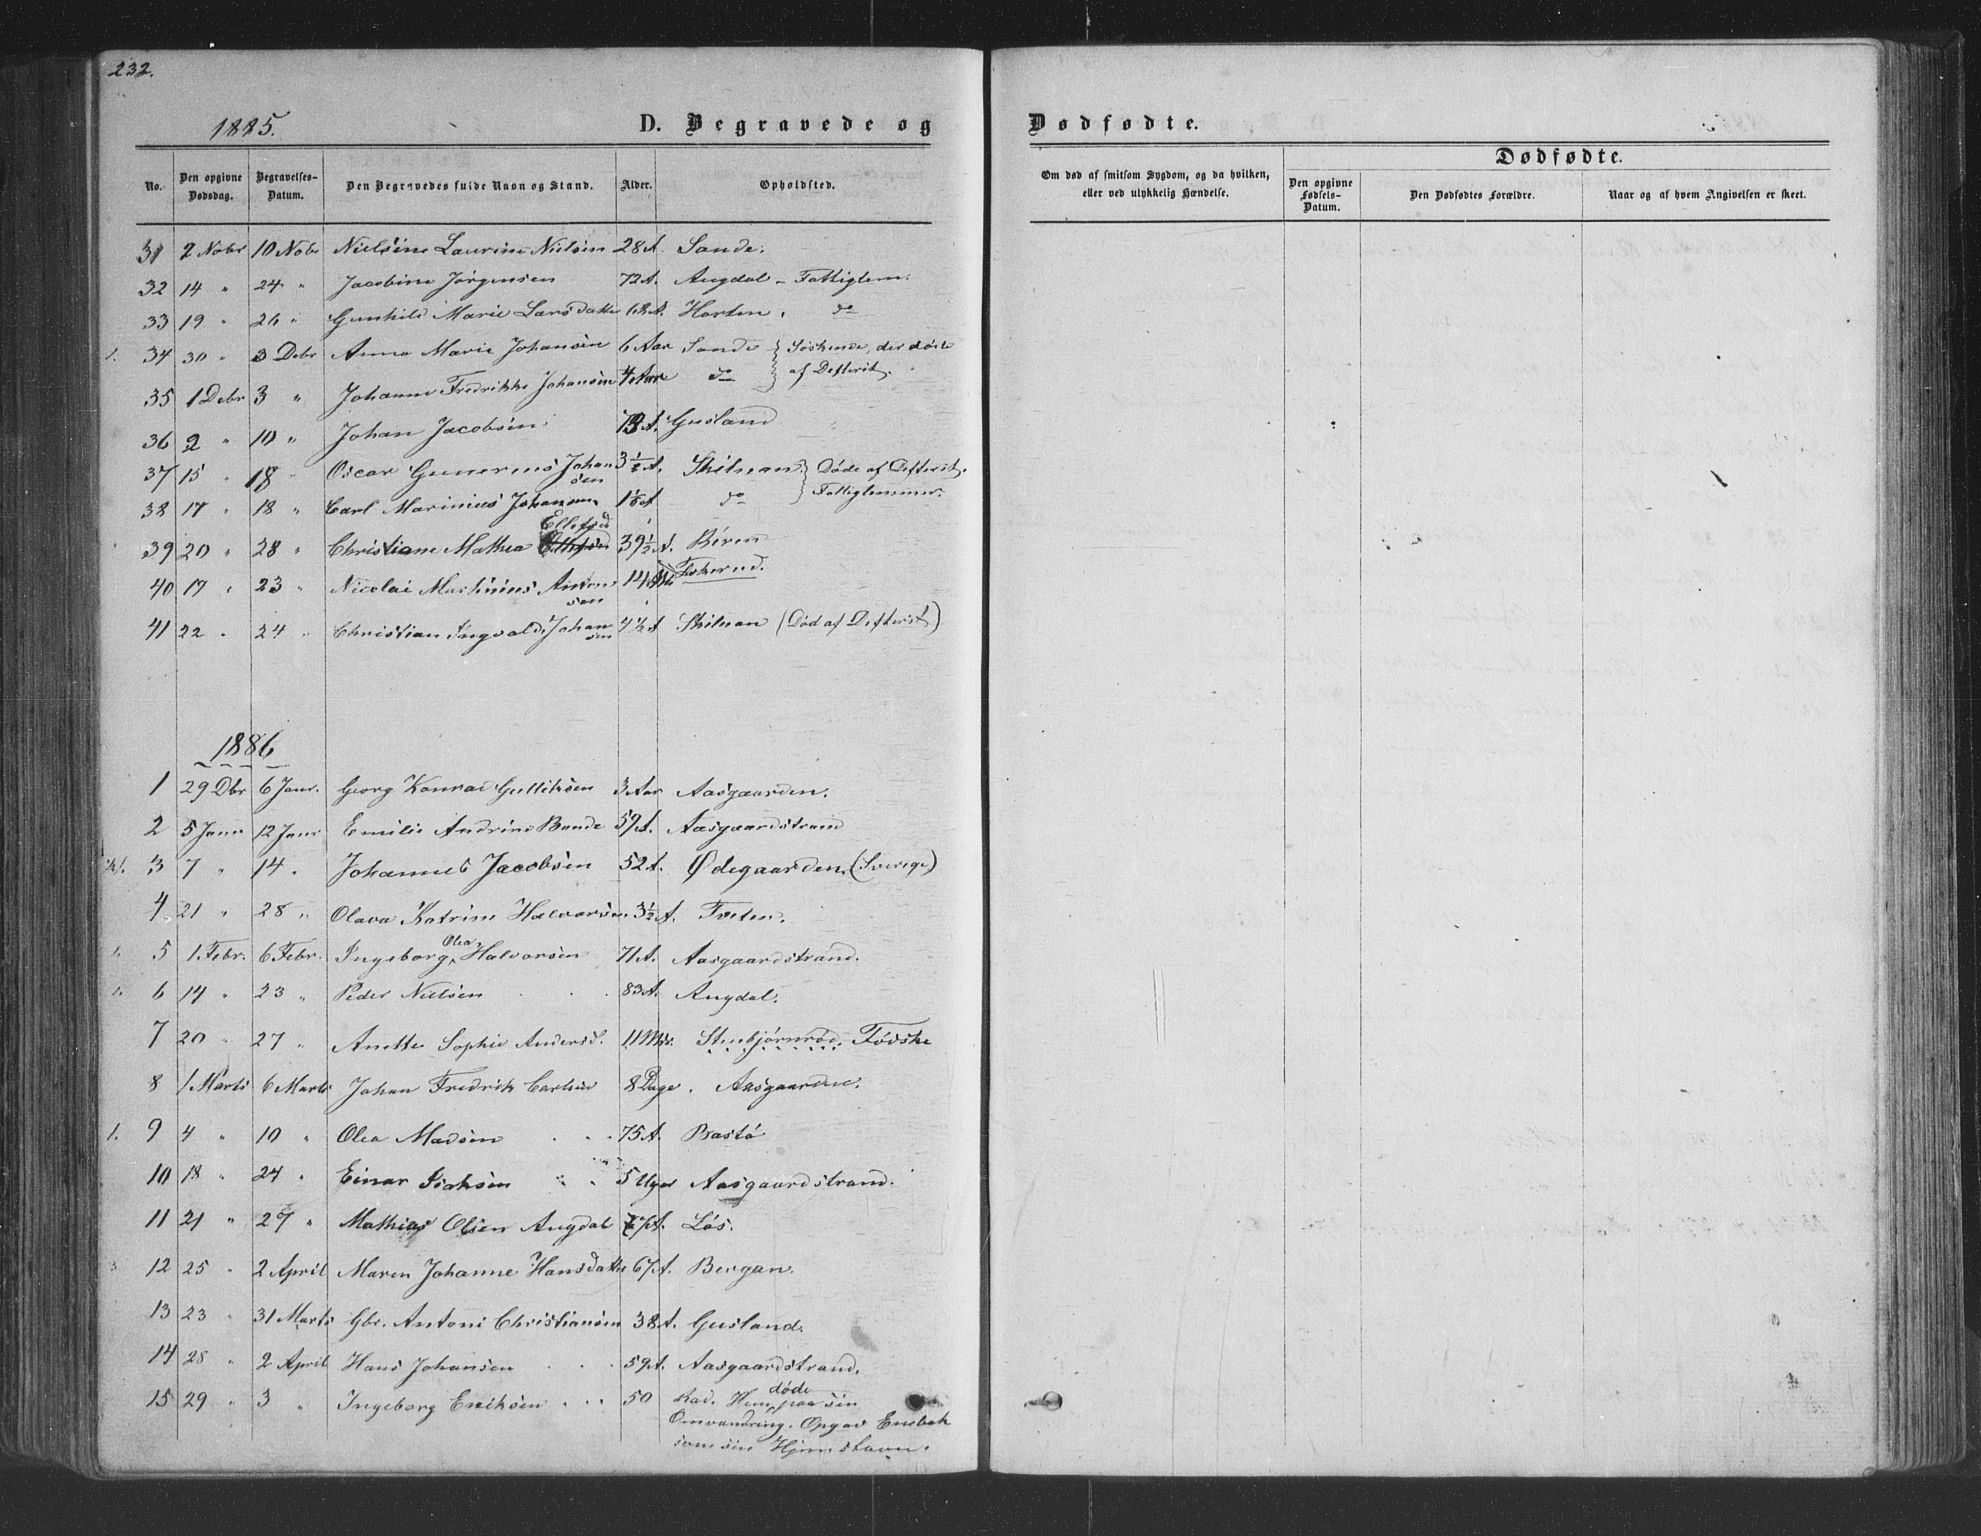 232.
1885.
D. Begravede og
No.
Den opgivne Dødsdag.
Begravelses-Datum.
Den Begravedes fulde Navn og Stand.
Alder.
Opholdsted.
31 2 Nobr 10 Nobr Nielsine Laurine Nielsen 28 A. Sande.
32 14 " 24 " Jacobine Jørgensen 72 A. Augdal - Fattiglem.
33 19 " 26 " Gunhild Marie Larsdatter Horten. do
1. 34 30 " 3 Debr Anna Marie Johansen 6 Aar Sande } Søskende, der døde
35 1 Debr 3 " Johanne Fredrikke Johansen 4 Aar do } af Defterit.
36 2 " 10 " Johan Jacobsen Gusland
37 15 " 18 " Oscar Johansen 3½ A. } Døde af Defterit.
38 17 " 18 " Carl Marinius Johansen do } Fattiglemmer.
Ellefsen
39 20 " 28 " Christiane Mathea 39½ A.
40 19 " 23 " Nicolai Martinius 14
41 22 " 24 " Christian Ingvald Johansen 4½ A (Død af Defterit)
1886
1 29 Dbr 6 Janr. Georg Konrad Gulliksen 3 Aar Aasgaarden.
2 5 Janr 12 Janr Emilie Andrine Bonde 59 A. Aasgaardstrand
3 7 " 14 " Johannes Jacobsen 52 A. Ødegaarden. (Sverige)
4 21 " 28 " Olava Katrine Halvorsen 3½ A. Tveten.
5 1. Febr. 6 Febr. Ingeborg Olea Halvorsen 71 A. Aasgaardstrand.
6 14 " 23 " Peder Nielsen 83 A. Augdal.
7 20 " 27 " Anette Sophie Anders. 11 Mdr. Stenbjørnrød.
8 1 Marts 6 Marts Johan Fredrik Carlsen 8 Dage. Aasgaarden.
1. 9 4 " 10 " Olea Madsen 75 A. Bastø
10 18 " 24 " Einar Isaksen 5 Uger Aasgaardstrand.
11 21 " 27 " Mathias Olsen Augdal Løs.
12 25 " 2 April Maren Johanne Hansdatter 67 A. Bergan.
13 23 " 31 Marts Gbr. Antoni Christiansen 38 A. Gusland.
14 28 " 2 April Hans Johansen 59 A. Aasgaardstrand.
15 29 " 3 " Ingeborg Eriksen 50 døde paa sin
Omvandring. Opgav Enebak
som sin Hjemstavn.
Dødfødte.
Om død af smitsom Sygdom, og da hvilken, eller ved ulykkelig Hændelse.
Dødfødte.
Den opgivne Fødsels-Datum.
Den Dødfødtes Forældre.
Naar og af hvem Angivelsen er skeet.